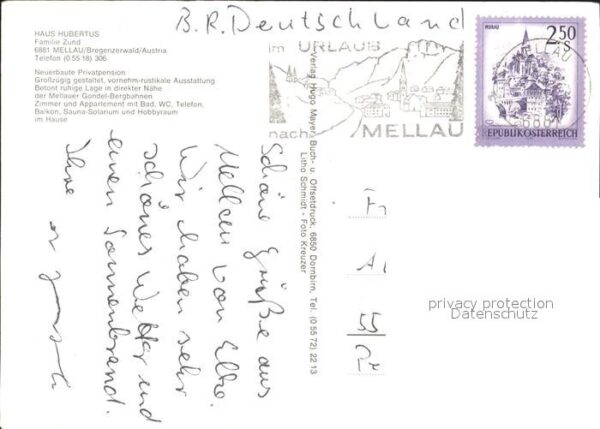 B.R. Deutschland
HAUS HUBERTUS
Familie Zünd
6881 MELLAU/Bregenzerwald/Austria
Telefon (0 55 18) 306
Neuerbaute Privatpension
Großzügig gestaltet, vornehm-rustikale Ausstattung
Betont ruhige Lage in direkter Nähe
der Mellauer Gondel-Bergbahnen
Zimmer und Appartement mit Bad, WC, Telefon,
Balkon, Sauna-Solarium und Hobbyraum
im Hause
im URLAUB
nach MELLAU
MURAU
2.50
S
REPUBLIK ÖSTERREICH
Verlag Hugo Mayer, Buch- u. Offsetdruck, 6850 Dornbirn, Tel. (0 55 72) 22 13
Litho Schmidt - Foto Kreuzer
Schöne Grüße aus
Mellau von
Wir haben sehr
schönes Wetter und
einen Sonnenbrand.
Ihre
Fr
A
55
privacy protection
Datenschutz